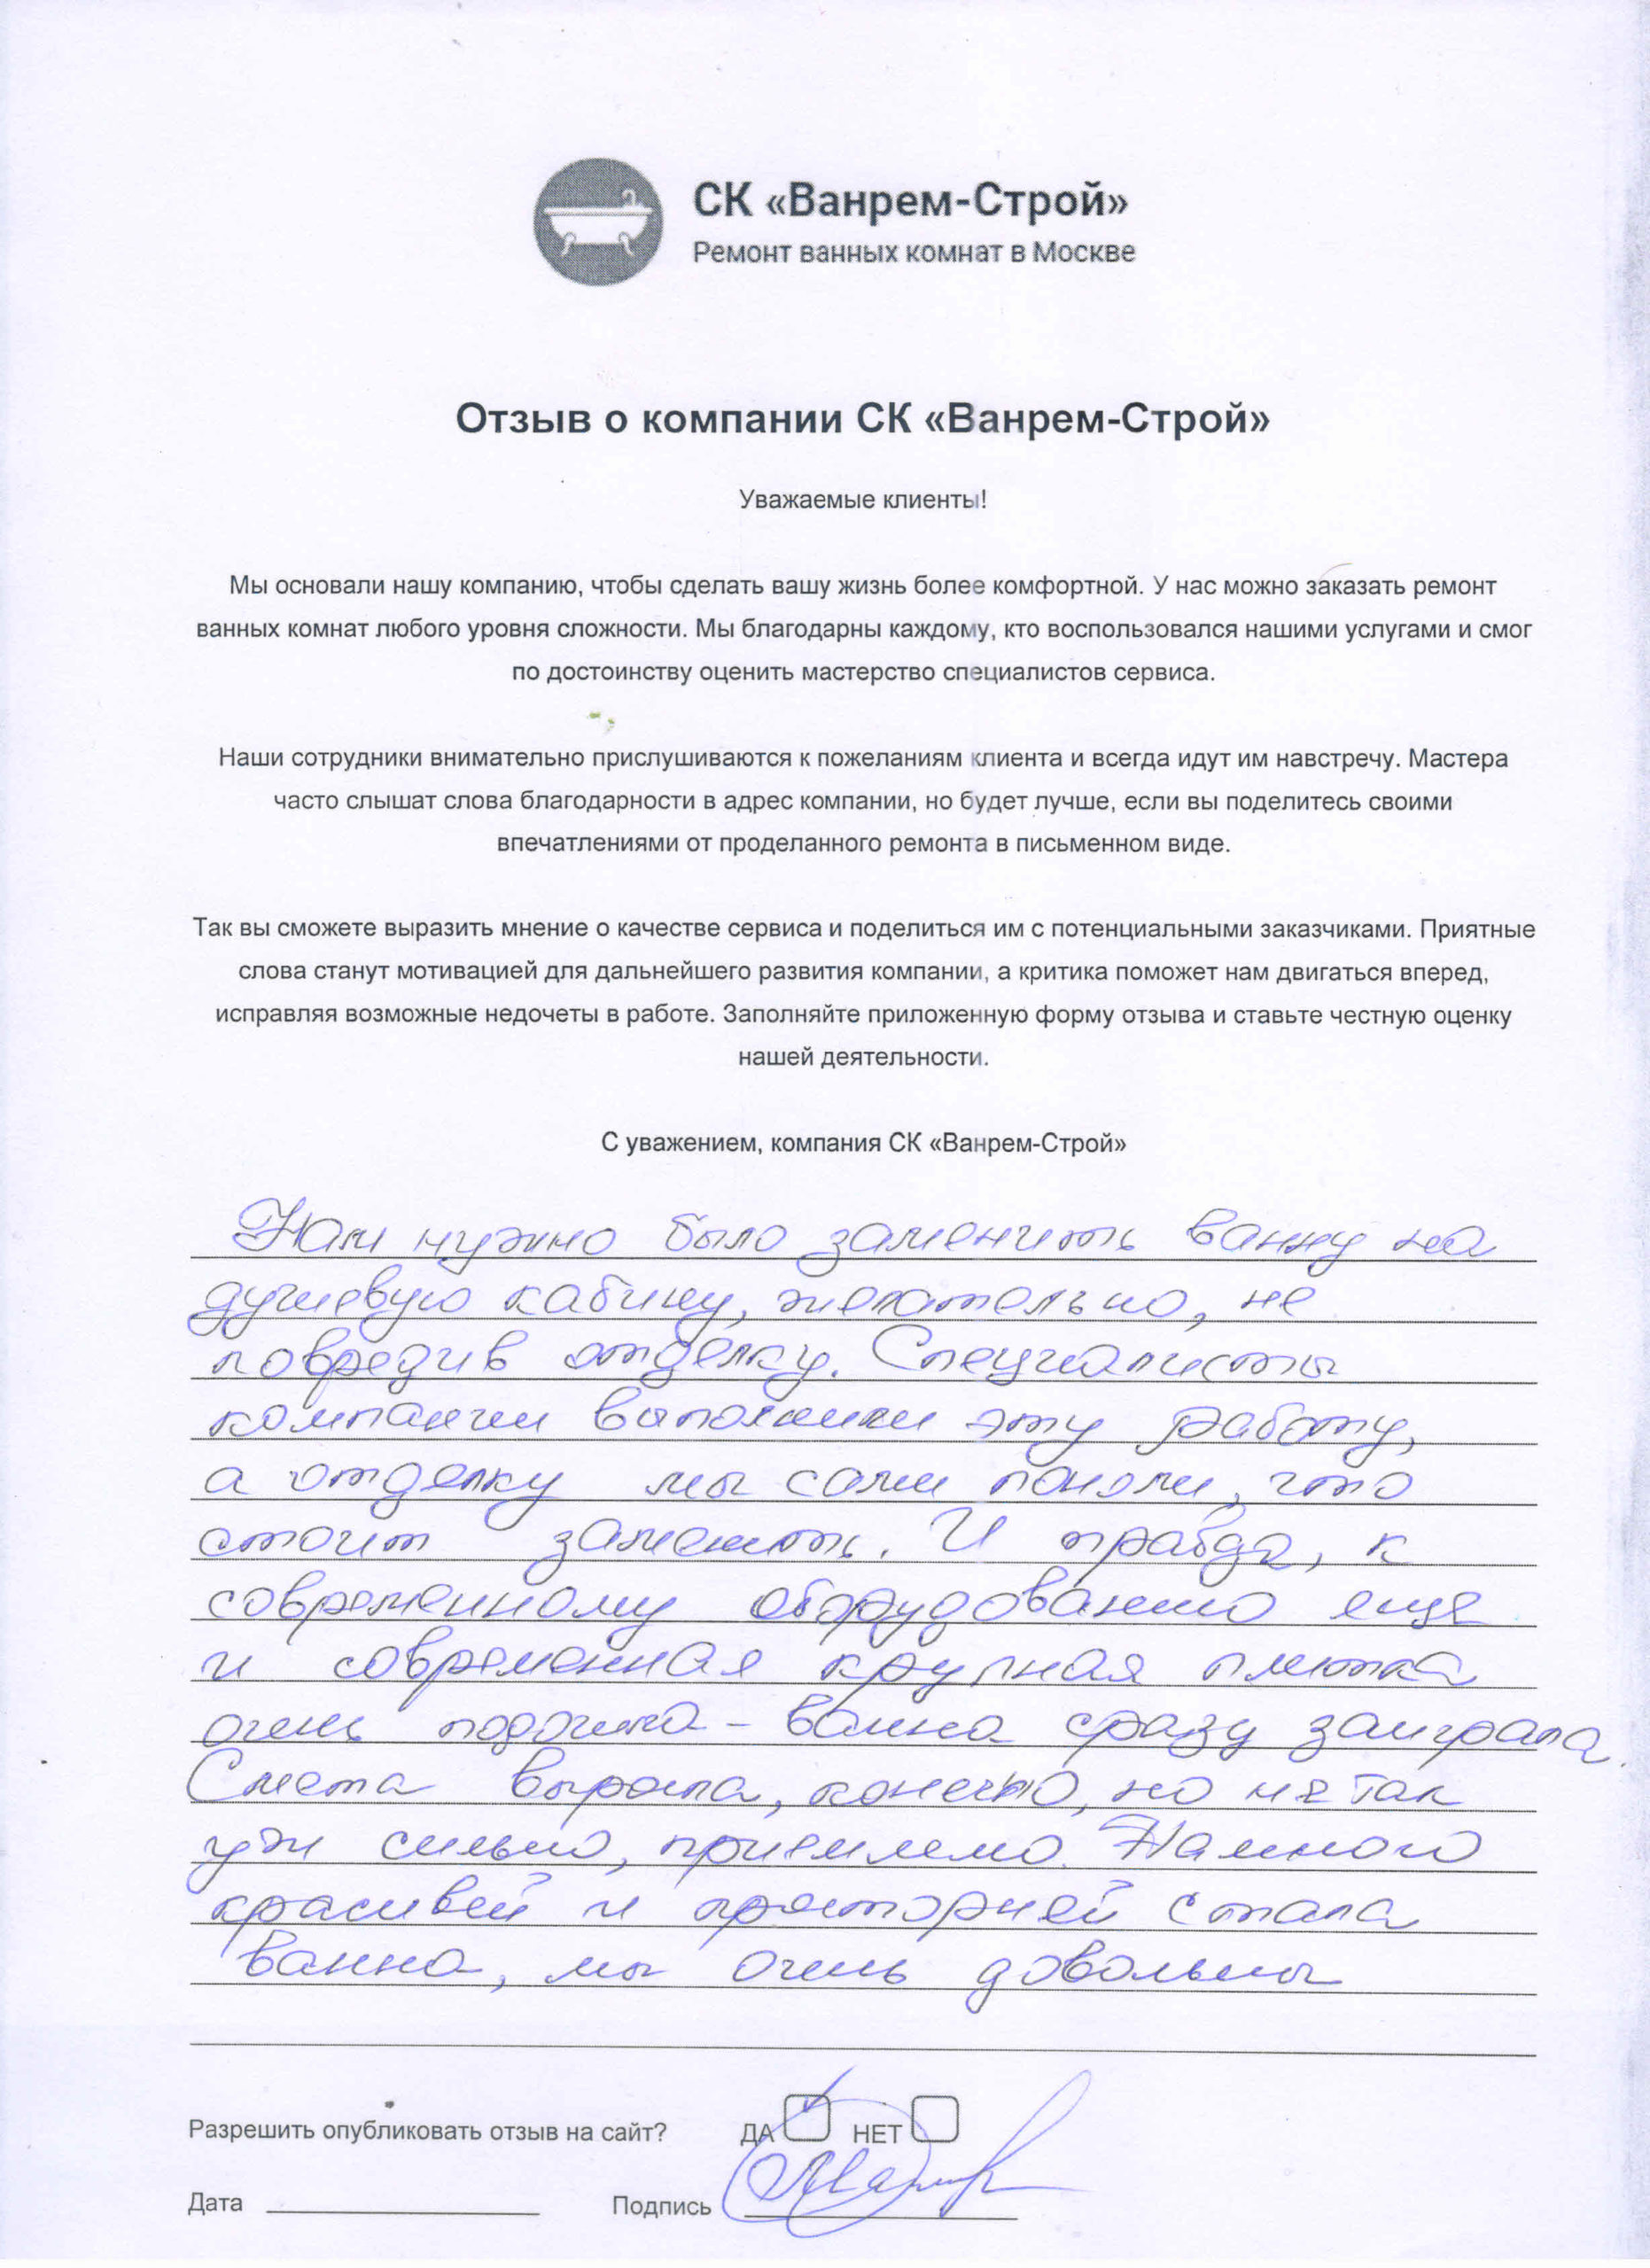 СК «Ванрем-Строй»
Ремонт ванных комнат в Москве
Отзыв о компании СК «Ванрем-Строй»
Уважаемые клиенты!
Мы основали нашу компанию, чтобы сделать вашу жизнь более комфортной. У нас можно заказать ремонт
ванных комнат любого уровня сложности. Мы благодарны каждому, кто воспользовался нашими услугами и смог
по достоинству оценить мастерство специалистов сервиса.
Наши сотрудники внимательно прислушиваются к пожеланиям клиента и всегда идут им навстречу. Мастера
часто слышат слова благодарности в адрес компании, но будет лучше, если вы поделитесь своими
впечатлениями от проделанного ремонта в письменном виде.
Так вы сможете выразить мнение о качестве сервиса и поделиться им с потенциальными заказчиками. Приятные
слова станут мотивацией для дальнейшего развития компании, а критика поможет нам двигаться вперед,
исправляя возможные недочеты в работе. Заполняйте приложенную форму отзыва и ставьте честную оценку
нашей деятельности.
С уважением, компания СК «Ванрем-Строй»
Нам нужно было заменить ванну на
душевую кабину, желательно, не
повредив отделку. Специалисты
компании выполнили эту работу,
а отделку мы сами поняли, что
стоит заменить. И правда, к
современному оборудованию еще
и современная крупная плитка
очень подошла – ванна сразу заиграла.
Смета выросла, конечно, но не так
уж сильно, приемлемо. Намного
красивей и просторней стала
ванна, мы очень довольны
Разрешить опубликовать отзыв на сайт? ДА НЕТ
Дата Подпись